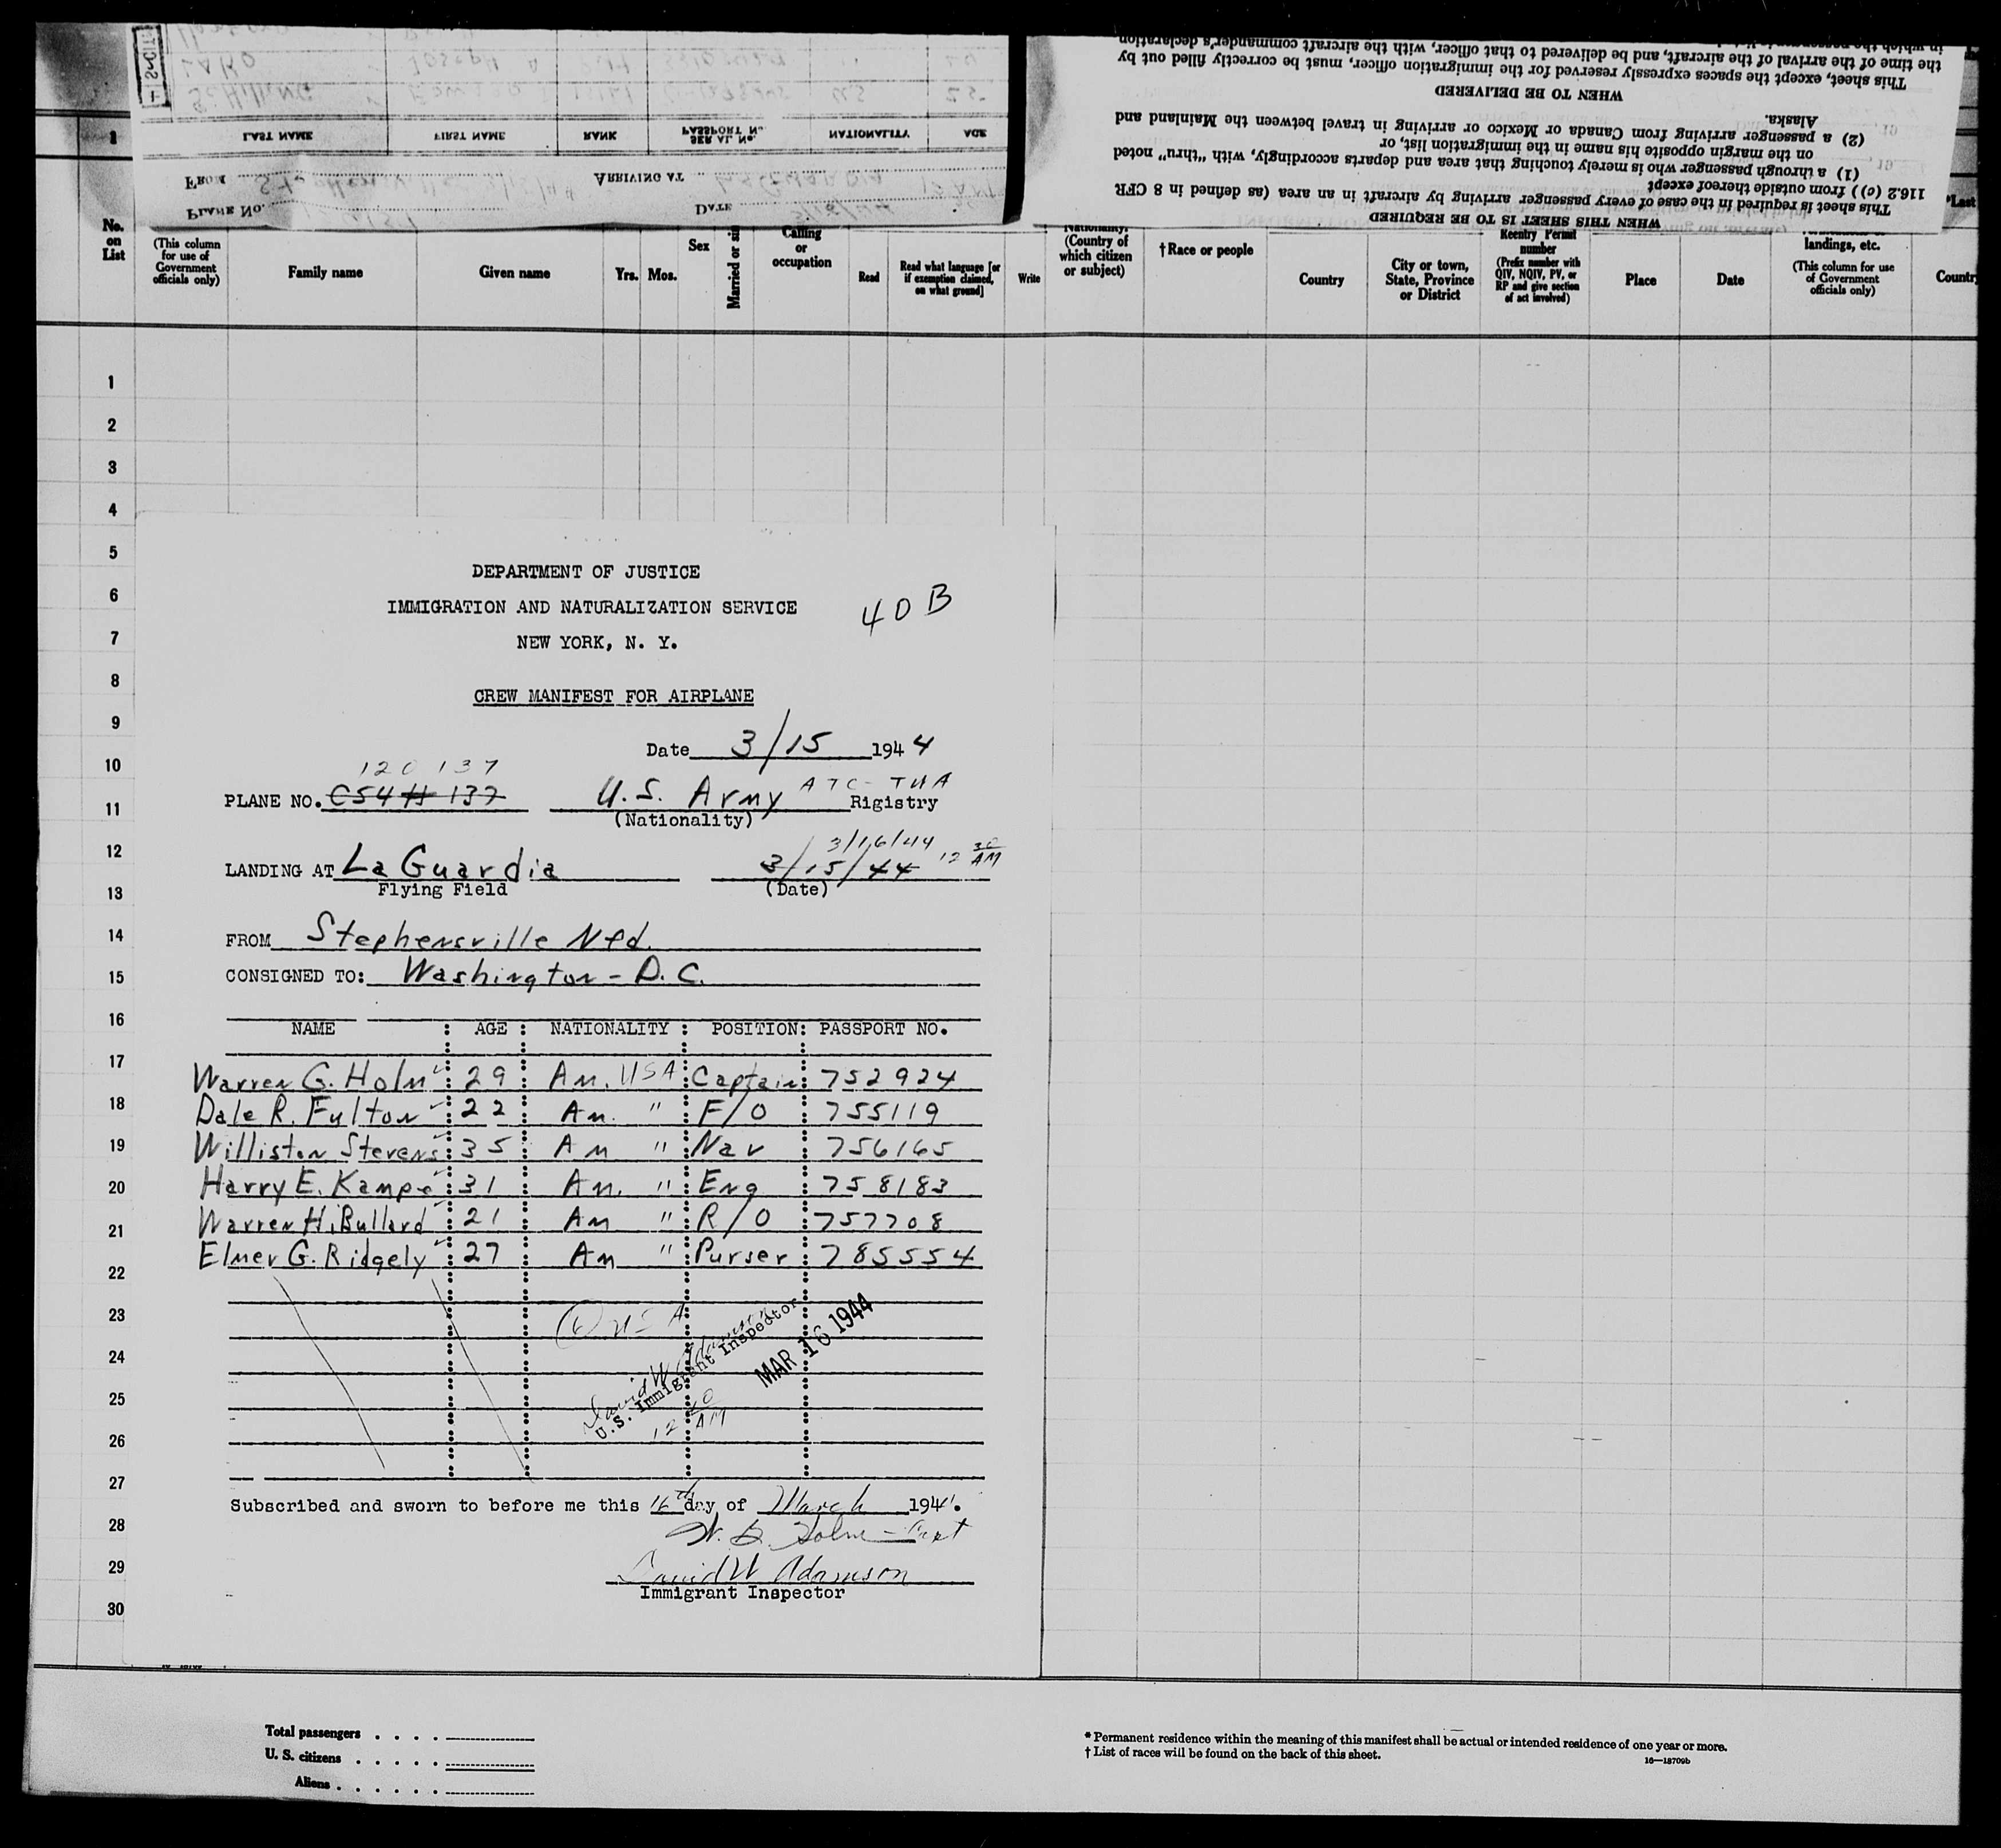 This sheet, except the spaces expressly reserved for the immigration officer, must be correctly filled out by
the time of the arrival of the aircraft, and be delivered to that officer, with the aircraft commander's declaration
WHEN TO BE DELIVERED
(2) a passenger arriving from Canada or Mexico or arriving in travel between the Mainland and
Alaska.
(1) a through passenger who is merely touching that area and departs accordingly, with "thru" noted
on the margin opposite his name in the immigration list, or
This sheet is required in the case of every passenger arriving by aircraft in an area (as defined in 8 CFR
116.2 (c)) from outside thereof except
WHEN THIS SHEET IS TO BE REQUIRED
LAST NAME FIRST NAME RANK PASSPORT No. SERIAL No. NATIONALITY AGE
FROM ARRIVING AT
PLANE NO. DATE
No.
on
List
(This column
for use of
Government
officials only)
Family name
Given name
Yrs. Mos.
Sex
Calling
or
occupation
Read
Read what language [or
if exemption claimed,
on what ground]
Write
(Country of
which citizen
or subject)
† Race or people
Country
City or town,
State, Province
or District
Reentry Permit
number
(Prefix number with
QIV, NQIV, PV, or
RP and give section
of act involved)
Place
Date
landings, etc.
(This column for use
of Government
officials only)
1
2
3
4
5
6
7
8
9
10
11
12
13
14
15
16
17
18
19
20
21
22
23
24
25
26
27
28
29
30
DEPARTMENT OF JUSTICE
IMMIGRATION AND NATURALIZATION SERVICE
40B
NEW YORK, N. Y.
CREW MANIFEST FOR AIRPLANE
Date 3/15 1944
120 137
PLANE NO. C54 # 137 U.S. Army ATC - TWA Rigistry
(Nationality)
3/16/44 12 30 AM
LANDING AT La Guardia 3/15/44
Flying Field (Date)
FROM Stephensville Nfd.
CONSIGNED TO: Washington - D.C.
NAME : AGE : NATIONALITY : POSITION: PASSPORT NO.
Warren G. Holm 29 Am. USA Captain 752924
Dale R. Fulton 22 Am. " F/O 755119
Williston Stevens 35 Am " Nav 756165
Harry E. Kampe 31 Am. " Eng 758183
Warren H. Bullard 21 Am " R/O 757708
Elmer G. Ridgely 27 Am " Purser 785554
(6) USA
David W Adamson
U.S. Immigrant Inspector
MAR 16 1944
12 30 AM
Subscribed and sworn to before me this 16th day of March 1944.
David W Adamson
Immigrant Inspector
Total passengers . . . .
U. S. citizens . . . . .
Aliens . . . . . .
* Permanent residence within the meaning of this manifest shall be actual or intended residence of one year or more.
† List of races will be found on the back of this sheet.
16—18709b